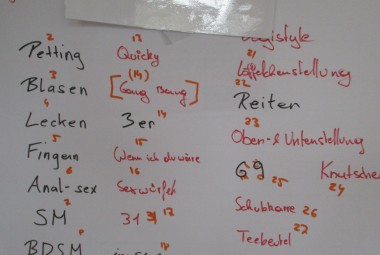 2
Petting
3
Blasen
4
Lecken
5
Fingern
6
Anal-sex
SM
BDSM
13
Quicky
(14)
[Gang Bang]
3er 14
15
(Wenn ich du wäre
16
Sexwürfel
31 17
21
Löffelchenstellung
22
Reiten
23
Oben-& Untenstellung
69 25
Knutschen
24
Schubkarre 26
27
Teebeutel